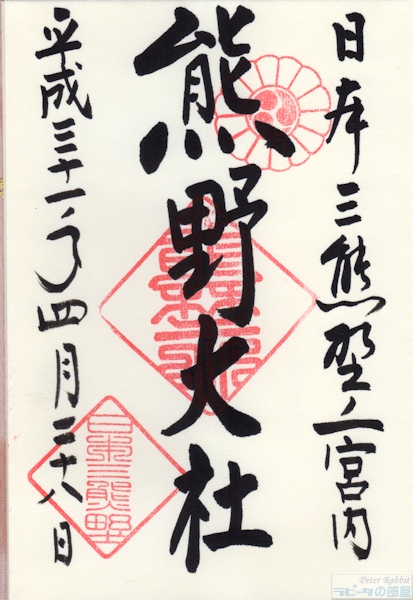 日本三熊野ノ一宮内
熊野大社
平成三十一年四月二十八日
日本三熊野
Peter Rabbit
ラピータの部屋